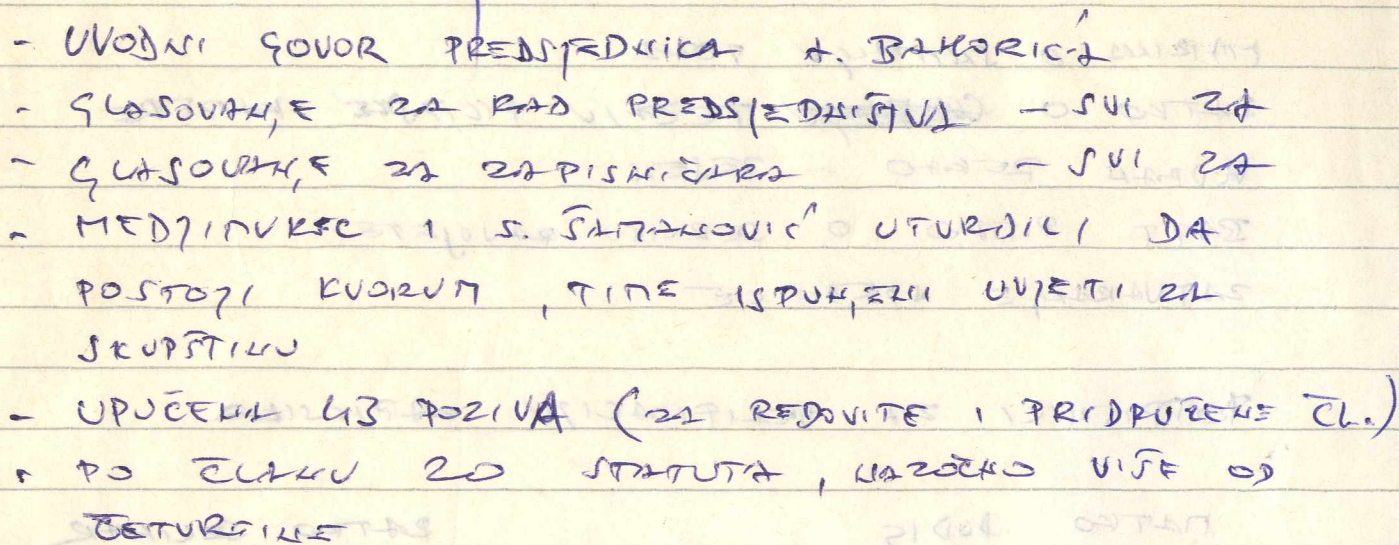 - UVODNI GOVOR PREDSJEDNIKA A. BAHORIĆA
- GLASOVANJE ZA RAD PREDSJEDNIŠTVA - SVI ZA
- GLASOVANJE ZA ZAPISNIČARA - SVI ZA
- MEDJIMUREC I S. ŠAMANOVIĆ UTVRDILI DA
POSTOJI KVORUM, TIME ISPUNJENI UVJETI ZA
SKUPŠTINU
- UPUĆENA 43 POZIVA (ZA REDOVITE I PRIDRUŽENE ČL.)
- PO ČLANU 20 STATUTA, NAZOČNO VIŠE OD
ČETVRTINE